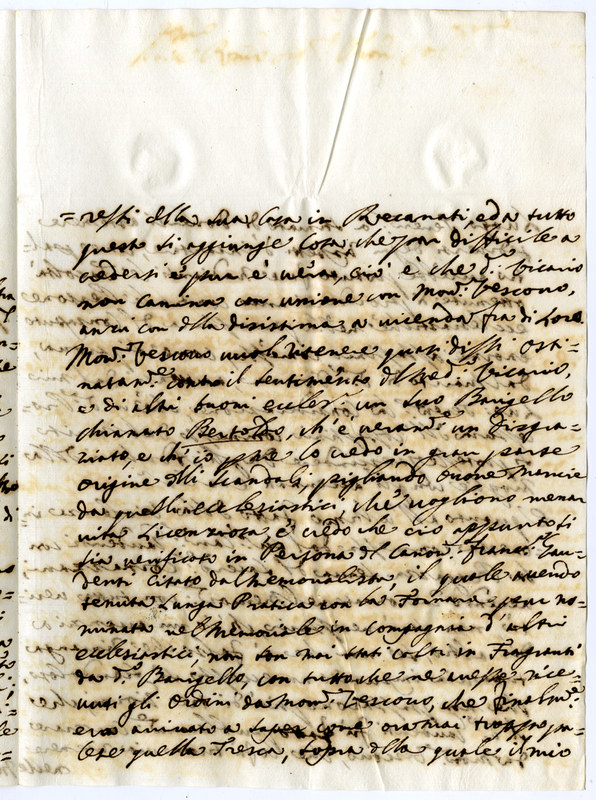 = resti della sua Casa in Recanati, ed a tutto
questo si aggiunge cosa che par difficile a
credersi e pur è vera, ciò è che d.º Vicario
non camina con unione con Mon.r Vescovo,
anzi con della disistima a vicenda fra di Loro
Mon.r Vescovo vuole ritenere quasi dissi osti-
natam.e contro il sentimento del med.º Vicario,
e di altri buoni eccles.ci un suo Barigello
chiamato Bertoldo, ch'è veram.e un disgra-
ziato, e ch'io pure lo credo in gran parte
origine delli scandali, pigliando buone Mancie
da quelli ecclesiastici, che vogliono menar
vita Licenziosa, e credo che ciò appunto si
sia verificato in Persona del Canon.º Franc.º Gau-
denti citato dal Memorialista, il quale avendo
tenuta Lunga Pratica con la Fornara pur no-
minata nel Memoriale in compagnia d'altri
ecclesiastici, non son mai stati colti in Fragranti
da d.º Barigello, con tutto che ne avesse rice-
vuti gli ordini da Mon.r Vescovo, che finalm.e
era arrivato a saper come oramai troppo pa-
lese quella Tresca, sopra della quale il mio